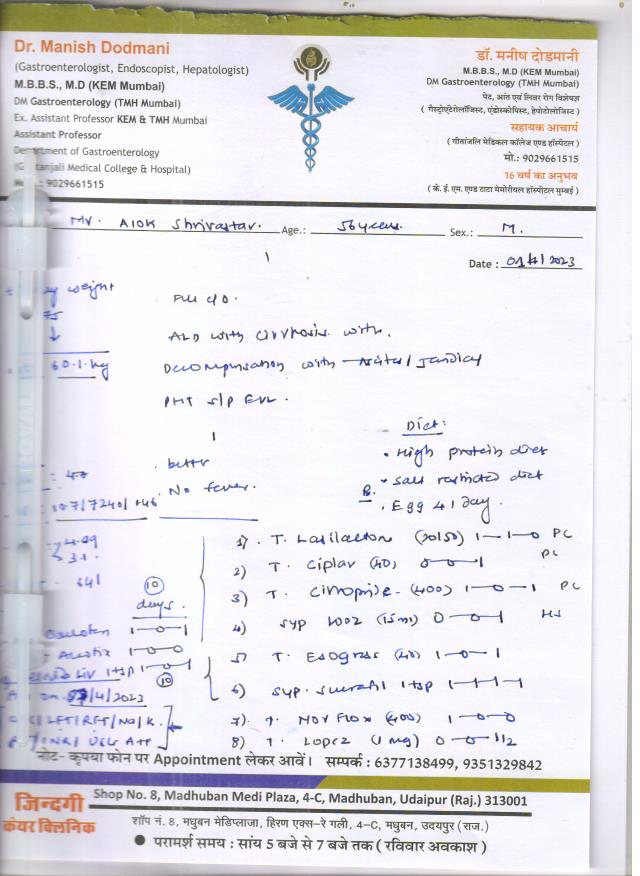 Dr. Manish Dodmani
(Gastroenterologist, Endoscopist, Hepatologist)
M.B.B.S., M.D (KEM Mumbai)
DM Gastroenterology (TMH Mumbai)
Ex. Assistant Professor KEM & TMH Mumbai
Assistant Professor
of Gastroenterology
Medical College & Hospital)
: 9029661515
डॉ. मनीष दोडमानी
M.B.B.S., M.D (KEM Mumbai)
DM Gastroenterology (TMH Mumbai)
पेट, आंत एवं लिवर रोग विशेषज्ञ
( गैस्ट्रोएंटेरोलॉजिस्ट, एंडोस्कोपिस्ट, हेपोटोलोजिस्ट )
सहायक आचार्य
( गीतांजलि मेडिकल कॉलेज एण्ड हॉस्पीटल )
मो.: 9029661515
16 वर्ष का अनुभव
( के. ई. एम. एण्ड टाटा मेमोरीयल हॉस्पीटल मुम्बई )
Mr. Alok Shrivastav. Age.: 56 years. Sex.: M.
Date : 2023
weight
60.1 kg
F/u c/o.
ALD with cirrhosis with.
Decompensation with Ascites / Jaundice
PHT s/p EVL.
better
No fever.
Diet:
• High protein diet
• Salt restricted diet
• Egg 4/day.
107/7240/146
4.09
3.1
10
days.
1) T. Lasilactone (20/50) 1-1-0 PC
2) T. Ciplar (40) 0-0-1 PC
3) T. Cinopride (400) 1-0-1 PC
4) Syp Looz (15ml) 0-0-1 HS
5) T. Esograss (40) 1-0-1
6) Syp. Sucrafil 1tsp 1-1-1-1
7) T. Norflox (400) 1-0-0
8) T. Lopez (1mg) 0-0-1/2
1-0-1
1-0-0
Liv 1tsp 1-0-1
10
on /4/2023
LFT/RFT/Na/K.
INR/ USG
नोट- कृपया फोन पर Appointment लेकर आवें। सम्पर्क : 6377138499, 9351329842
जिन्दगी
केयर क्लिनिक
Shop No. 8, Madhuban Medi Plaza, 4-C, Madhuban, Udaipur (Raj.) 313001
शॉप नं. 8, मधुबन मेडिप्लाजा, हिरण एक्स-रे गली, 4-C, मधुबन, उदयपुर (राज.)
• परामर्श समय : सांय 5 बजे से 7 बजे तक ( रविवार अवकाश )